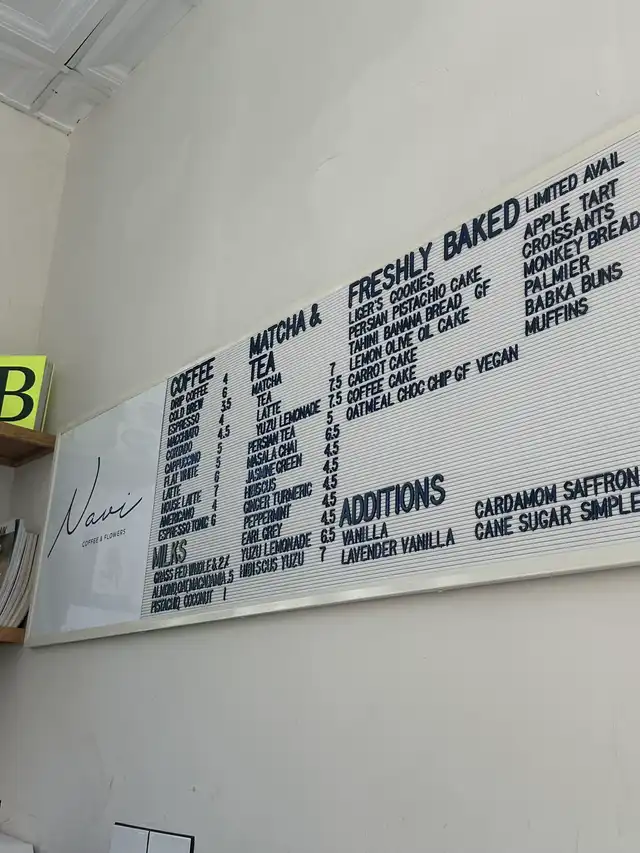 B
Navi
COFFEE & FLOWERS
COFFEE
DRIP COFFEE 4
COLD BREW 6
ESPRESSO 3.5
MACCHIATO 4
CORTADO 4.5
CAPPUCCINO 5
FLAT WHITE 5
LATTE 6
HOUSE LATTE 7
AMERICANO 4
ESPRESSO TONIC 6
MILKS
GRASS FED WHOLE & 2%
PISTACHIO, COCONUT 1
MATCHA &
TEA
MATCHA 7
TEA
LATTE 7.5
YUZU LEMONADE 7.5
PERSIAN TEA 5
MASALA CHAI 6.5
JASMINE GREEN 4.5
HIBISCUS 4.5
GINGER TURMERIC 4.5
PEPPERMINT 4.5
EARL GREY 4.5
YUZU LEMONADE 6.5
HIBISCUS YUZU 7
FRESHLY BAKED
LIGER'S COOKIES
PERSIAN PISTACHIO CAKE
TAHINI BANANA BREAD GF
LEMON OLIVE OIL CAKE
CARROT CAKE
COFFEE CAKE
OATMEAL CHOC CHIP GF VEGAN
LIMITED AVAIL
APPLE TART
CROISSANTS
MONKEY BREAD
PALMIER
BABKA BUNS
MUFFINS
ADDITIONS
VANILLA
LAVENDER VANILLA
CARDAMOM SAFFRON
CANE SUGAR SIMPLE